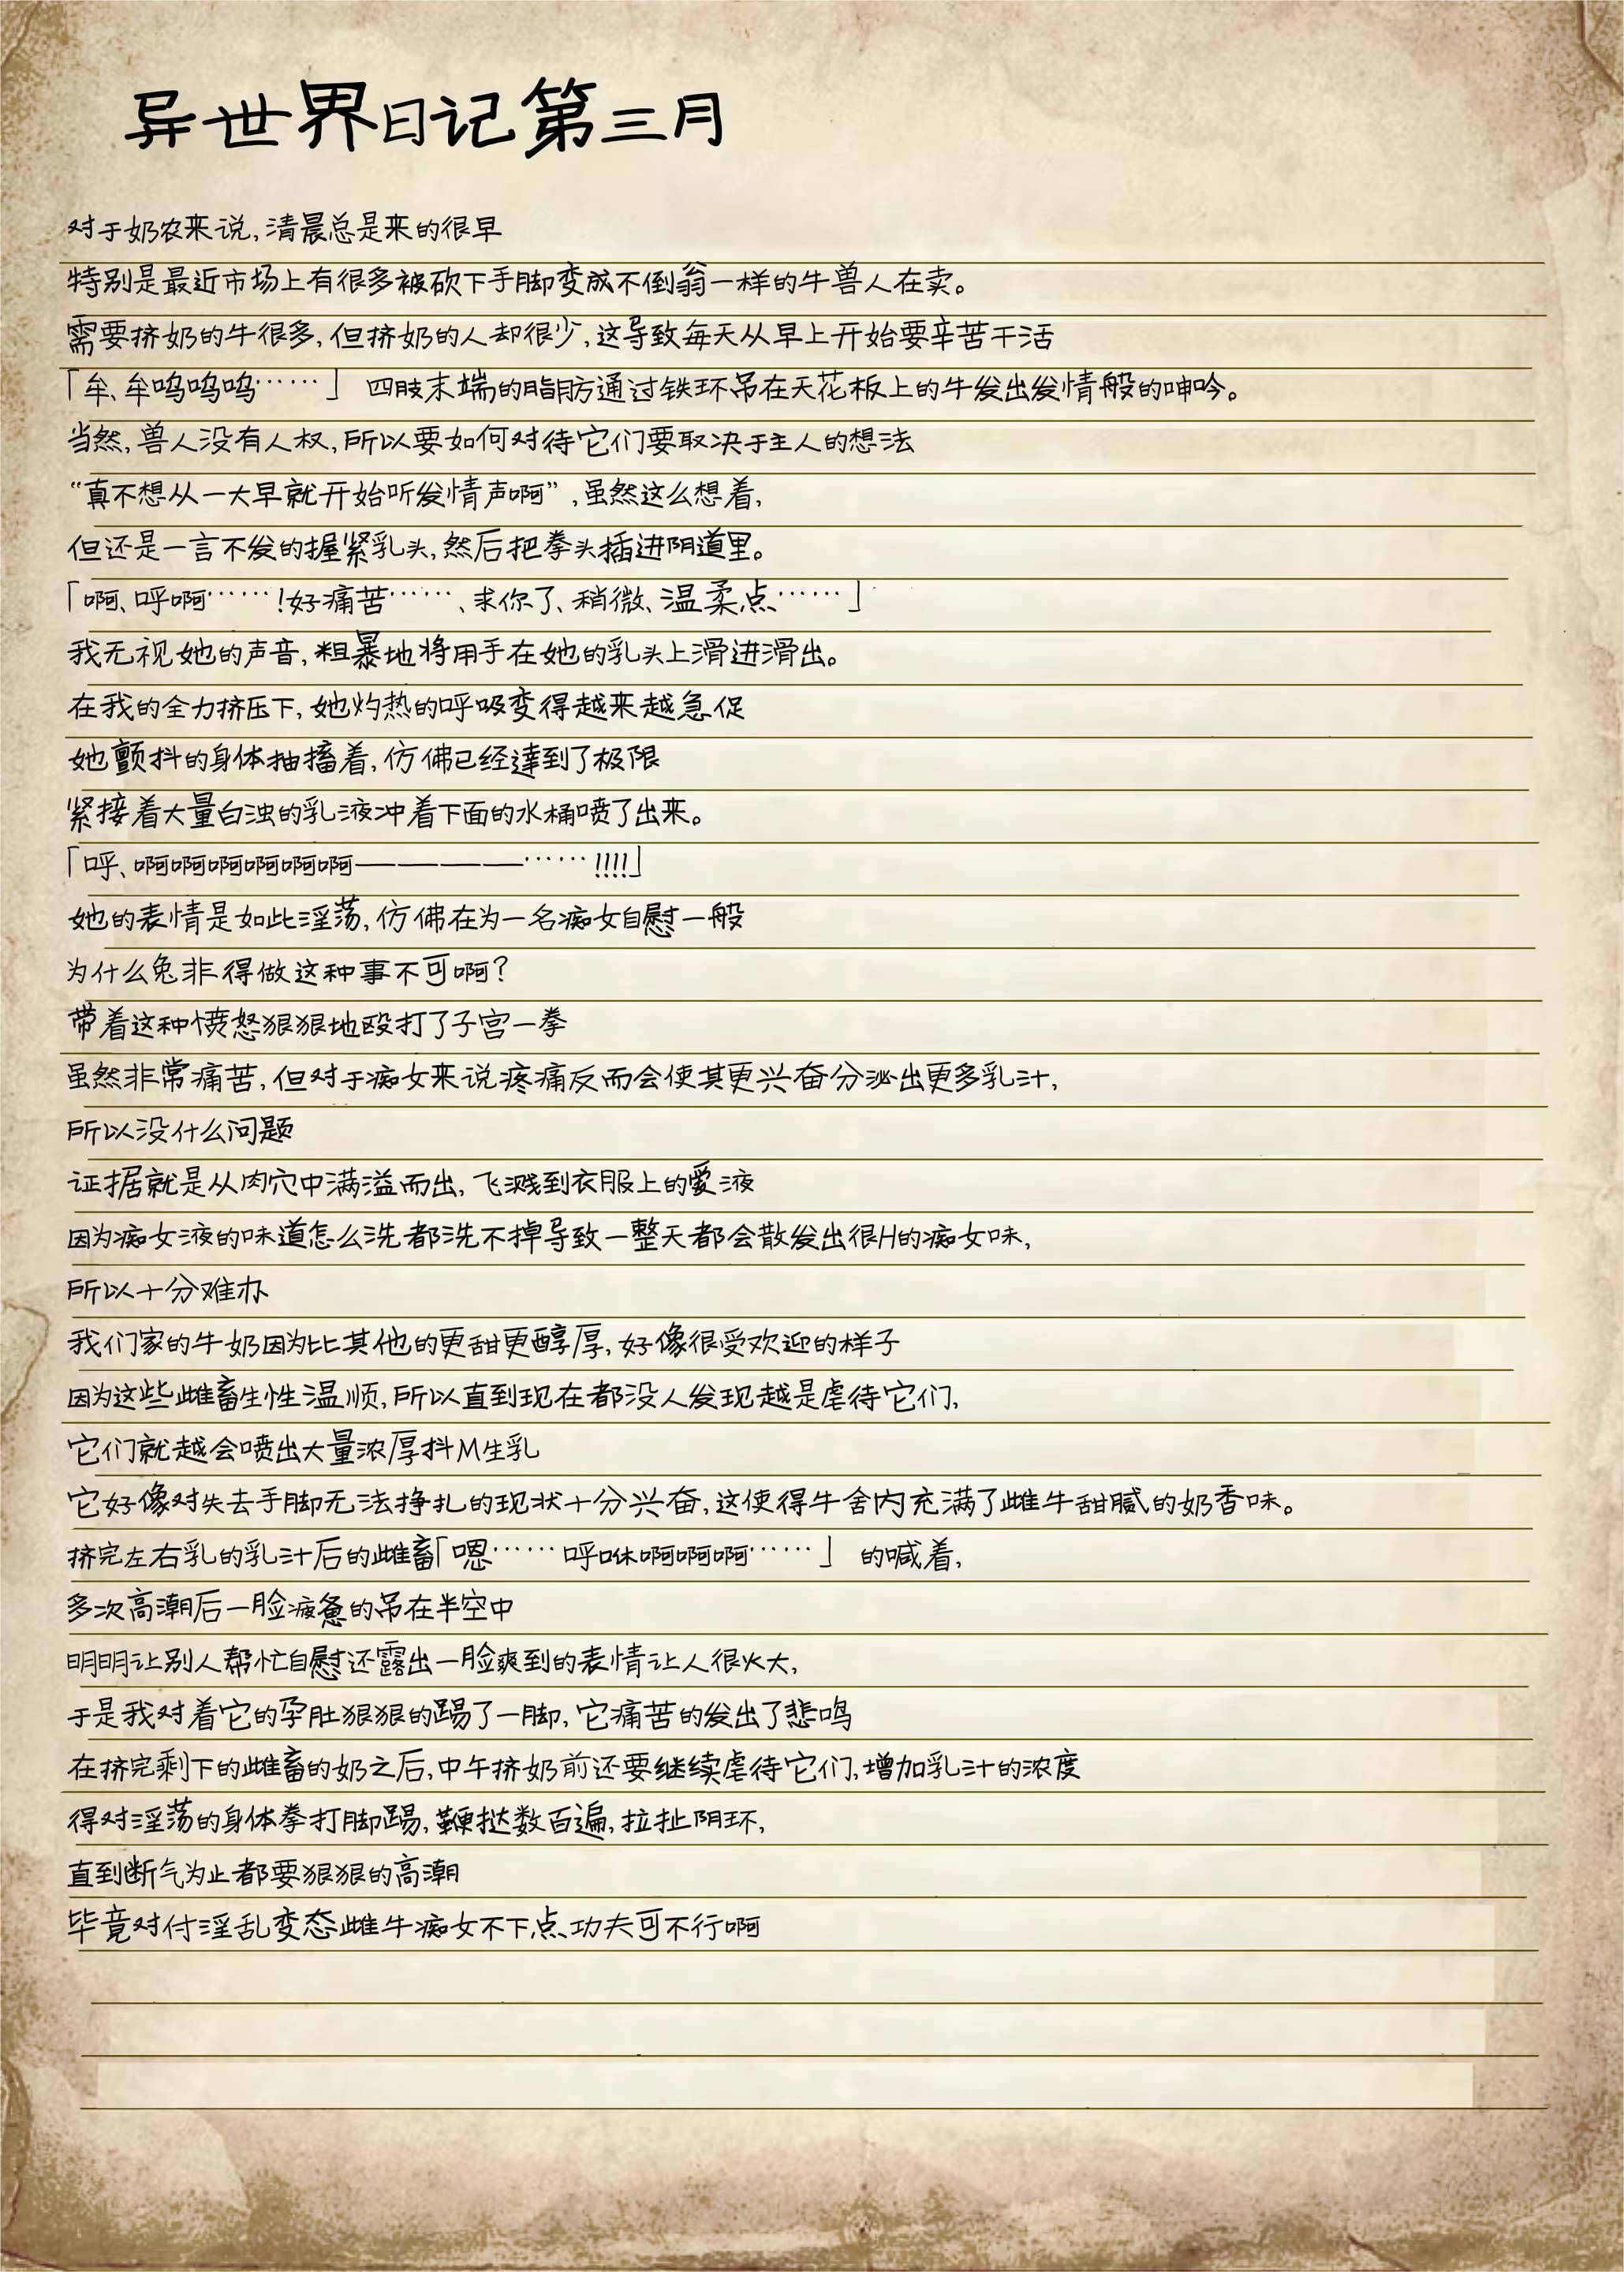 异世界日记第三月
对于奶农来说,清晨总是来的很早
特别是最近市场上有很多被砍下手脚变成不倒翁一样的牛兽人在卖。
需要挤奶的牛很多,但挤奶的人却很少,这导致每天从早上开始要辛苦干活
「牟、牟呜呜呜……」 四肢末端的脂肪通过铁环吊在天花板上的牛发出发情般的呻吟。
当然,兽人没有人权,所以要如何对待它们要取决于主人的想法
“真不想从一大早就开始听发情声啊”,虽然这么想着,
但还是一言不发的握紧乳头,然后把拳头插进阴道里。
「啊、呼啊……!好痛苦……、求你了、稍微、温柔点……」
我无视她的声音,粗暴地将用手在她的乳头上滑进滑出。
在我的全力挤压下,她灼热的呼吸变得越来越急促
她颤抖的身体抽搐着,仿佛已经達到了极限
紧接着大量白浊的乳液冲着下面的水桶喷了出来。
「呼、啊啊啊啊啊啊————……!!!!」
她的表情是如此淫荡,仿佛在为一名痴女自慰一般
为什么兔非得做这种事不可啊?
带着这种愤怒狠狠地殴打了子宫一拳
虽然非常痛苦,但对于痴女来说疼痛反而会使其更兴奋分泌出更多乳汁,
所以没什么问题
证据就是从肉穴中满溢而出,飞溅到衣服上的爱液
因为痴女液的味道怎么洗都洗不掉导致一整天都会散发出很H的痴女味,
所以十分难办
我们家的牛奶因为比其他的更甜更醇厚,好像很受欢迎的样子
因为这些雌畜生性温顺,所以直到现在都没人发现越是虐待它们,
它们就越会喷出大量浓厚抖M生乳
它好像对失去手脚无法挣扎的现状十分兴奋,这使得牛舍内充满了雌牛甜腻的奶香味。
挤完左右乳的乳汁后的雌畜「嗯……呼咻啊啊啊……」 的喊着,
多次高潮后一脸疲惫的吊在半空中
明明让别人帮忙自慰还露出一脸爽到的表情让人很火大,
于是我对着它的孕肚狠狠的踢了一脚,它痛苦的发出了悲鸣
在挤完剩下的雌畜的奶之后,中午挤奶前还要继续虐待它们,增加乳汁的浓度
得对淫荡的身体拳打脚踢,鞭挞数百遍,拉扯阴环,
直到断气为止都要狠狠的高潮
毕竟对付淫乱变态雌牛痴女不下点功夫可不行啊